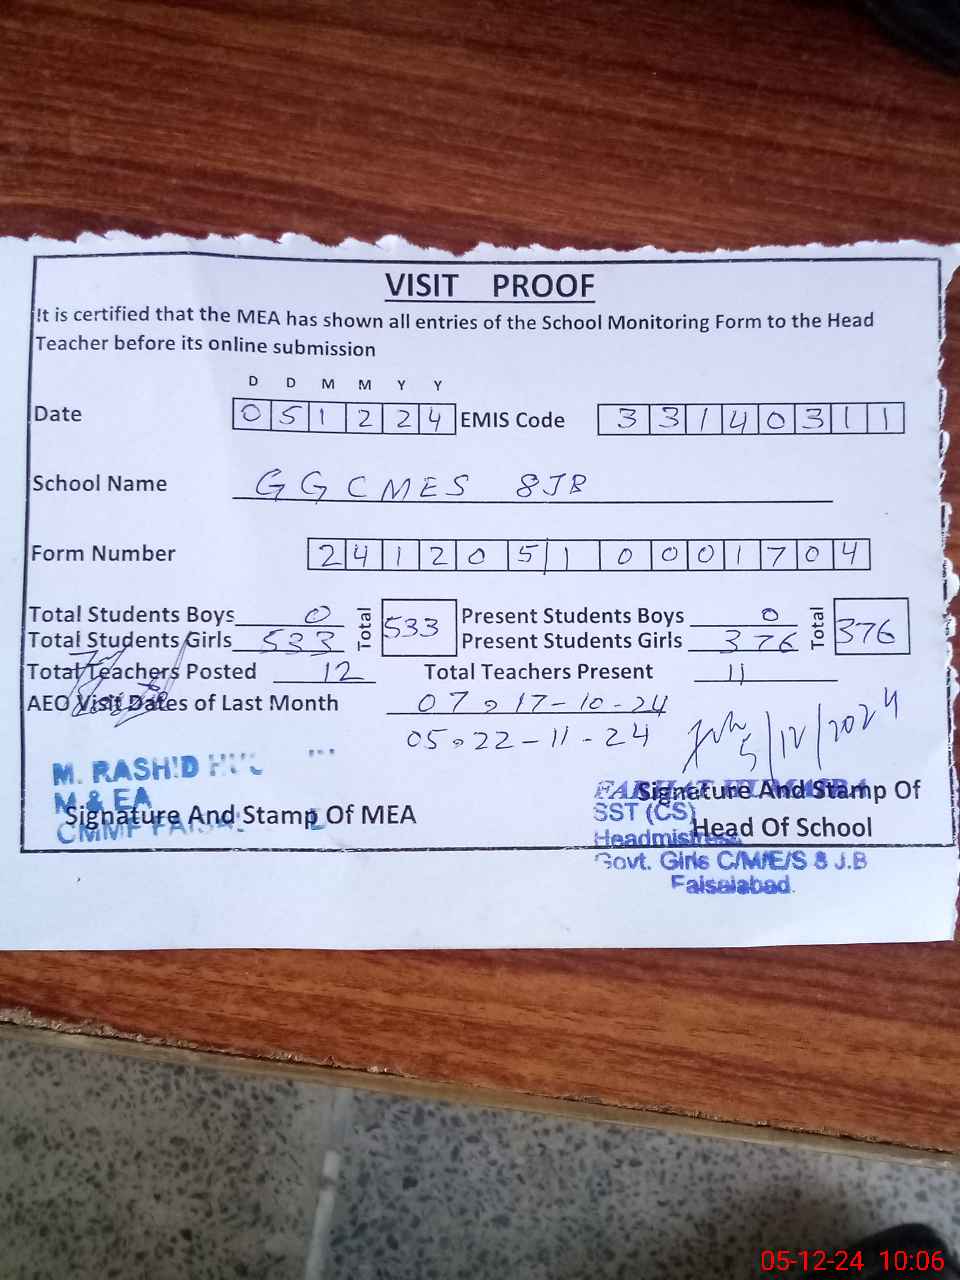 VISIT PROOF
It is certified that the MEA has shown all entries of the School Monitoring Form to the Head
Teacher before its online submission
D D M M Y Y
Date 0 5 1 2 2 4 EMIS Code 3 3 1 4 0 3 1 1
School Name GGCMES 8JB
Form Number 2 4 1 2 0 5 1 0 0 0 1 7 0 4
Total Students Boys 0 Total 533 Present Students Boys 0 Total 376
Total Students Girls 533 Present Students Girls 376
Total Teachers Posted 12 Total Teachers Present 11
AEO Visit Dates of Last Month 07, 17-10-24
05, 22-11-24
5/12/2024
M. RASHID
M & EA
CMMF
Signature And Stamp Of MEA
Signature And Stamp Of
SST (CS)
Head Of School
Headmistress
Govt. Girls C/M/E/S 8 J.B
Faisalabad.
05-12-24 10:06